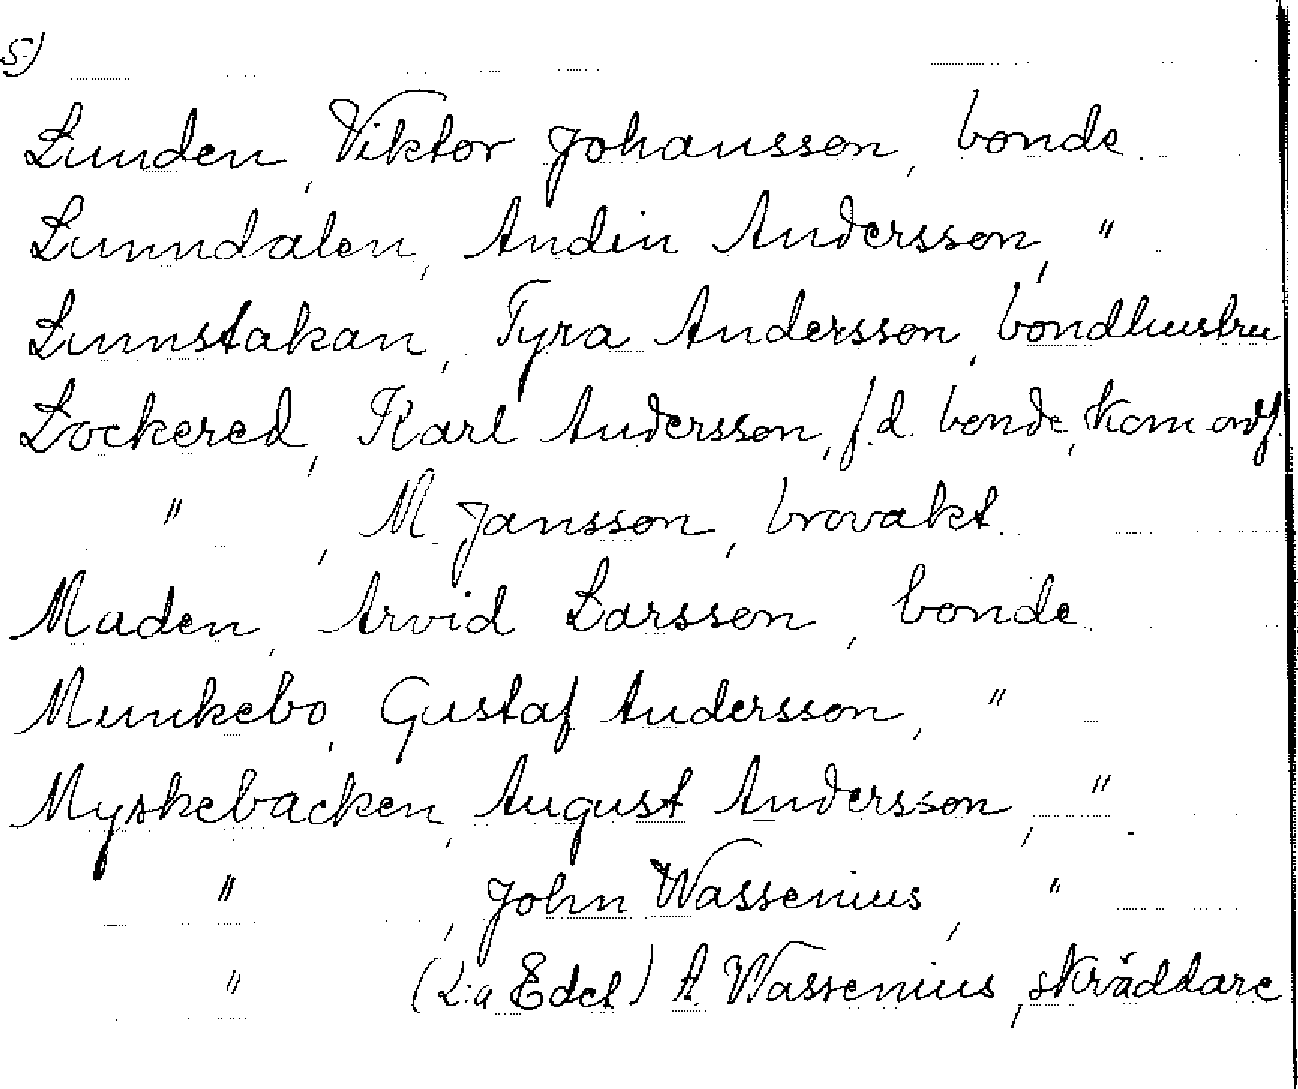 5)
Lunden, Viktor Johansson, bonde.
Lunndalen, Andin Andersson, "
Lunnstakan, Tyra Andersson, bondhustru
Lockered, Karl Andersson, f.d. bonde, kom ordf.
" , M. Jansson, brovakt.
Maden, Arvid Larsson, bonde.
Munkebo, Gustaf Andersson, "
Myskebacken, August Andersson, "
" , John Wassenius, "
" (L:a Edet) A. Wassenius, skräddare